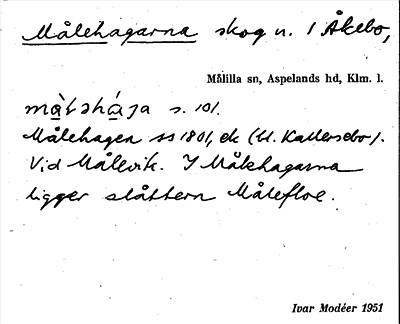 Målehagarna skog n. 1 Åkebo,
Målilla sn, Aspelands hd, Klm. l.
s. 101.
Målehagen ss 1801, ek (bl. Kallersebo).
Vid Målevik. I Målehagarna
ligger slåttern Målefloe.
Ivar Modéer 1951